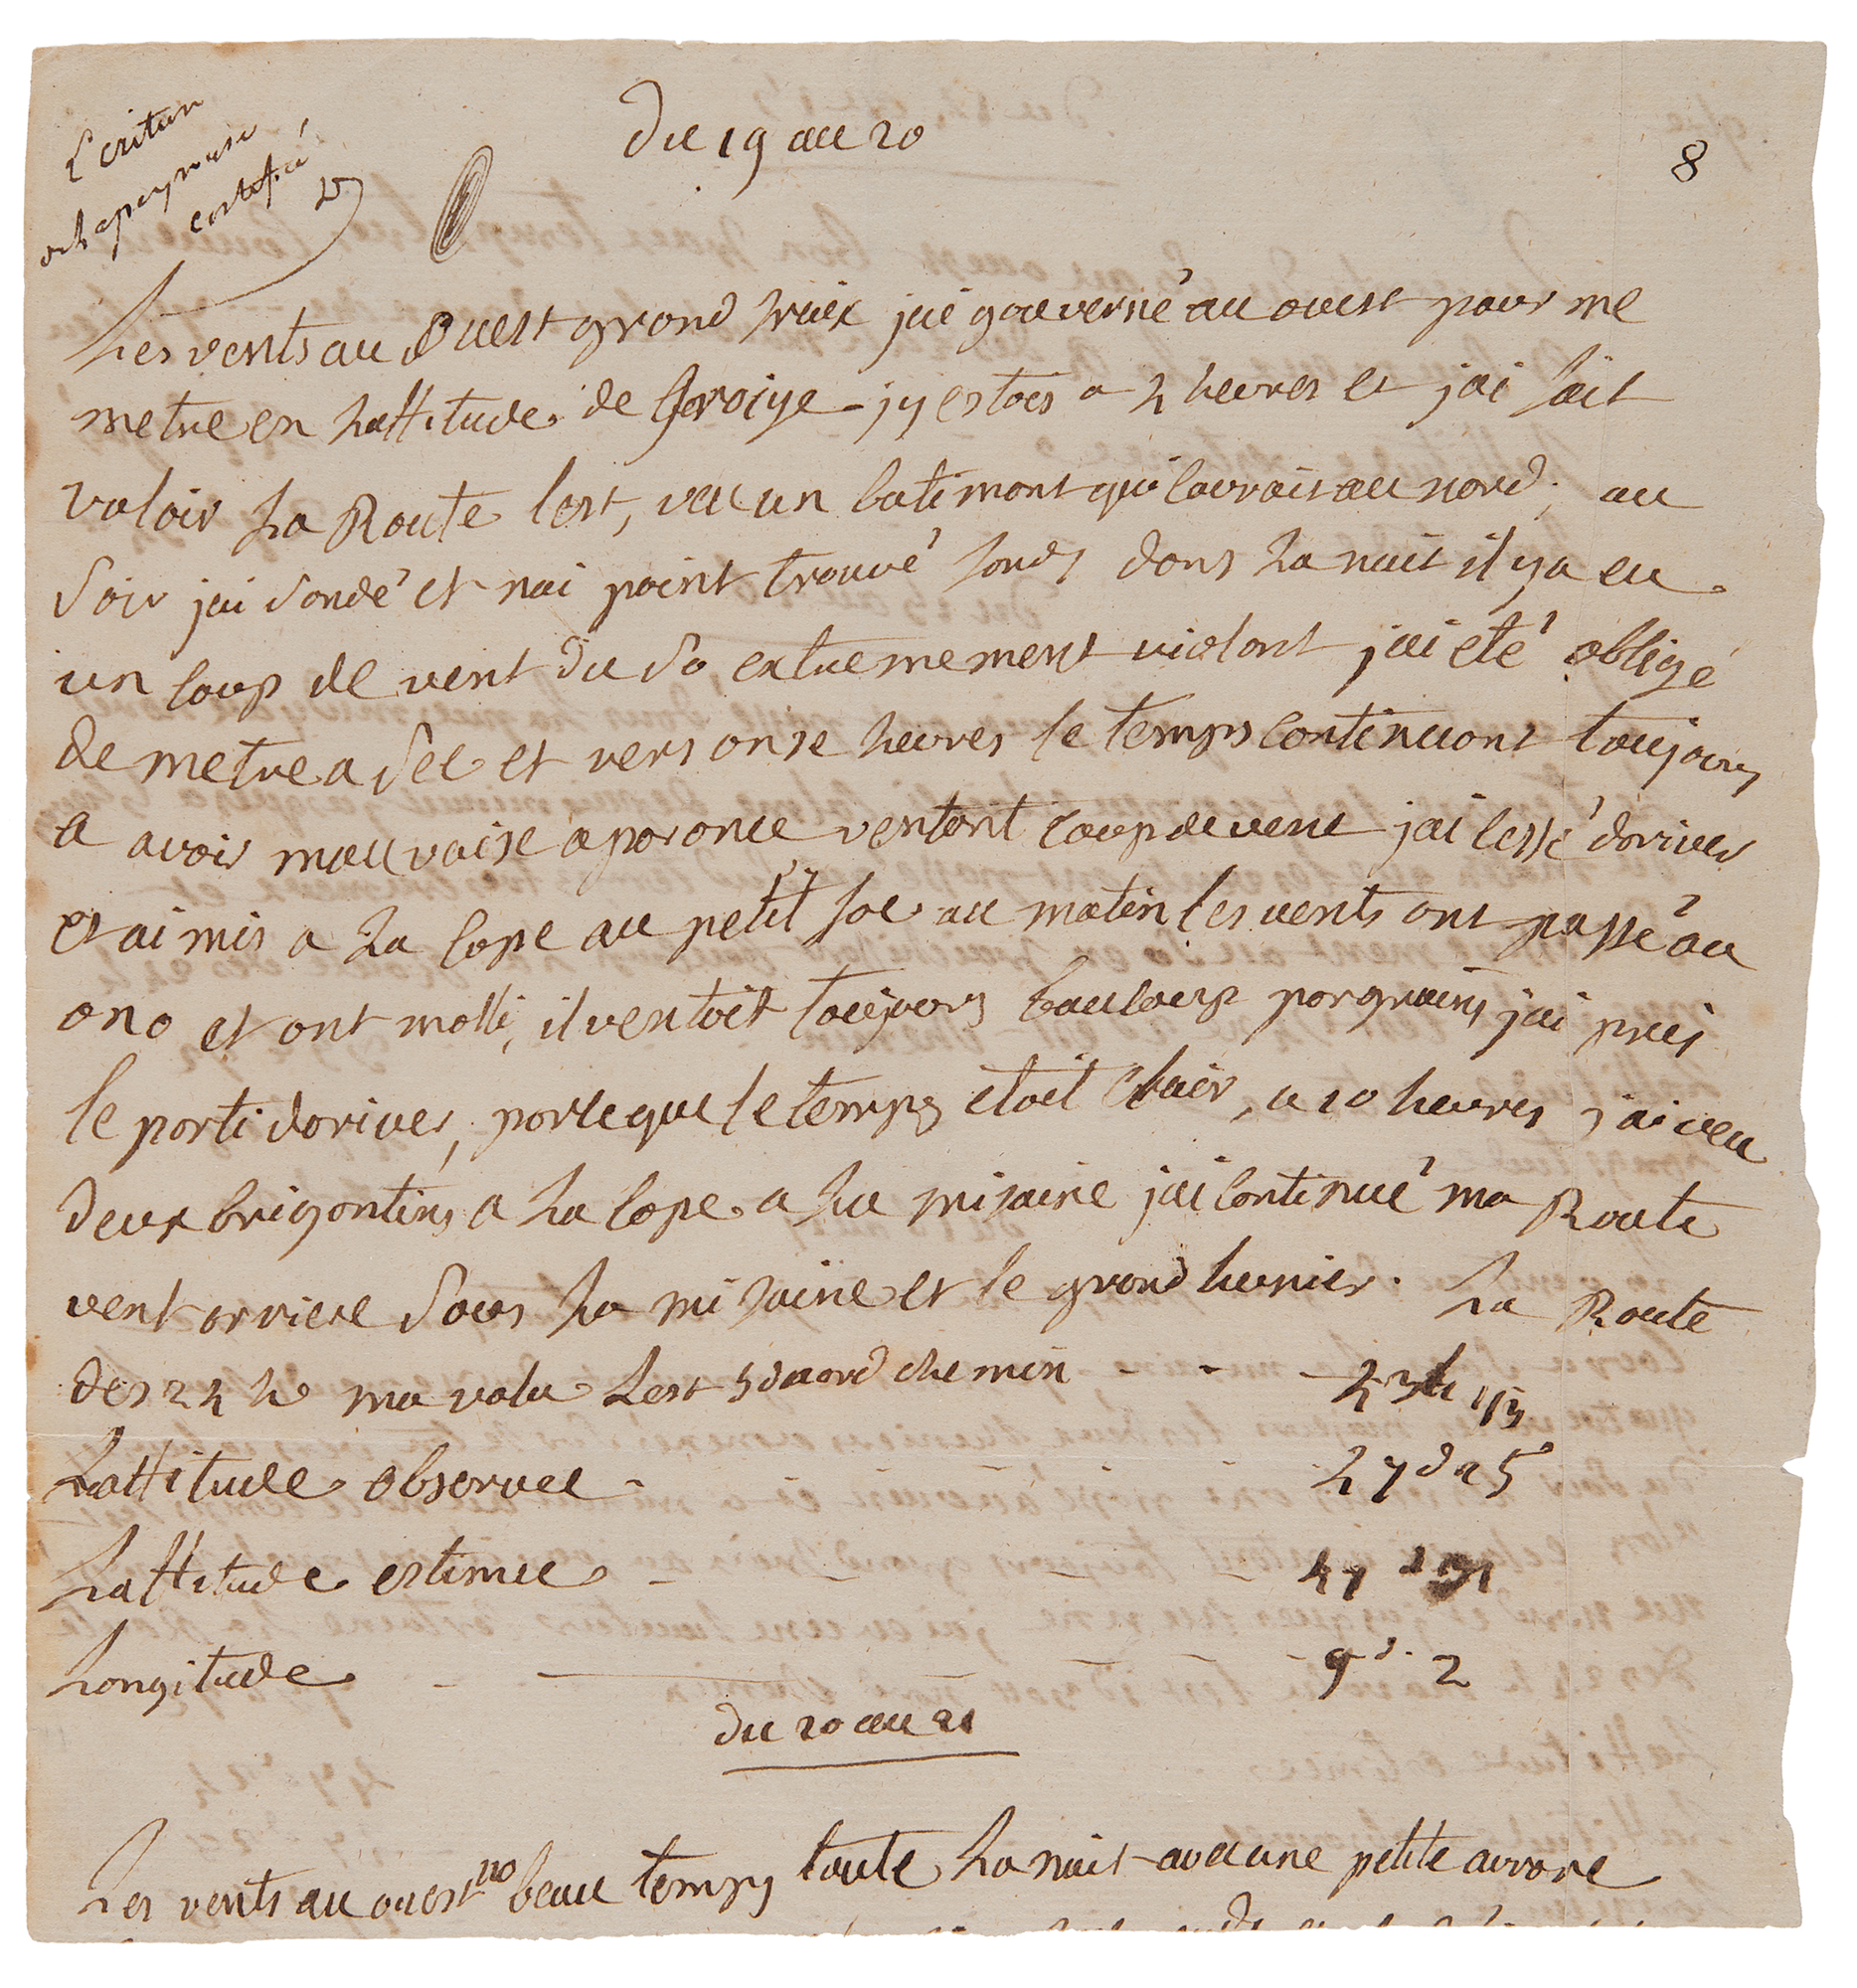 L'ecriture
de lapeyrouse
certifié
du 19 au 20
8
Les vents au Ouest grand frais jai gouverné au ouest pour me
metre en Lattitude de jy estois a 2 heures et jai fait
valoir La Route lest, veu un batiment qui couroit au nord, au
soir jai sondé et nai point trouvé fonds dans La nuit il y a eu
un coup de vent du So extremement violant jai eté obligé
de metre a sec et vers onse heures le temps continuant toujours
a avoir mauvaise aparance ventant coup de vent jai lessé dariver
et ai mis a La cape au petit foc au matin les vents ont passé au
ono et ont molli, il ventoit toujours baucoup par grains jai pris
le parti dariver, parceque le temps etoit clair, a 10 heures jai veu
deux brigantins a La cape a La misaine jai continué ma Route
vent arriere sous La misaine et le grand hunier. La Route
des 24 h ma valu Lest 5d nord chemin
Lattitude observee 47d 25
Lattitude estimee 47d
Longitude 9d. 2
du 20 au 21
Les vents au ouest no beau temps toute La nuit avec une petite aurore